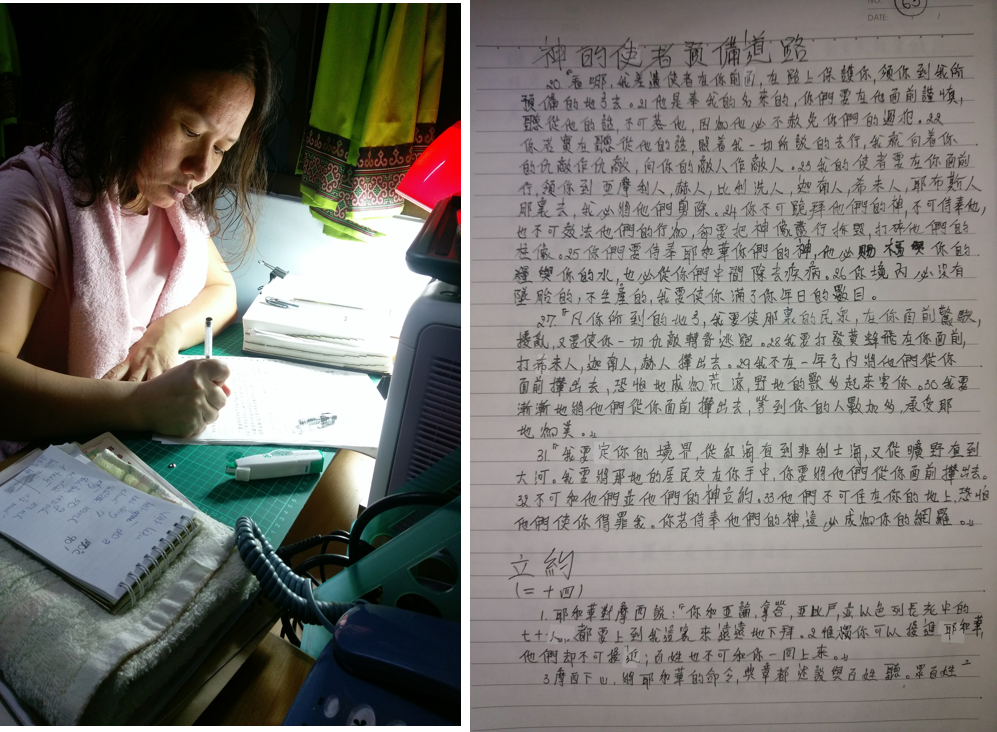 NO. 65
DATE: / /
神的使者預備道路
20.“看哪,我差遣使者在你前面,在路上保護你,領你到我所
預備的地方去。21他是奉我的名來的,你們要在他面前謹慎,
聽從他的話,不可惹他,因為他必不赦免你們的過犯。22
你若實在聽從他的話,照着我一切所說的去行,我就向着你
的仇敵作仇敵,向你的敵人作敵人。23我的使者要在你面前
行,領你到亞摩利人,赫人,比利洗人,迦南人,希未人,耶布斯人
那裏去,我必將他們剪除。24你不可跪拜他們的神,不可侍奉他,
也不可效法他們的行為,卻要把神像盡行拆毀,打碎他們的
柱像。25你們要侍奉耶和華你們的神,他必賜福與你的
糧與你的水,也必從你們中間除去疾病。26你境內必沒有
墜胎的,不生產的,我要使你滿了你年日的數目。
27.“凡你所到的地方,我要使那裏的民眾,在你面前驚駭,
擾亂,又要使你一切仇敵轉背逃跑。28我要打發黃蜂飛在你面前,
打希未人,迦南人,赫人攆出去。29我不在一年之內將他們從你
面前攆出去,恐怕地成為荒涼,野地的獸多起來害你。30我要
漸漸地將他們從你面前攆出去,等到你的人數加多,承受那
地為美。
31.“我要定你的境界,從紅海直到非利士海,又從曠野直到
大河。我要將那地的居民交在你手中,你要將他們從你面前攆出去。
32不可和他們並他們的神立約。33他們不可住在你的地上,恐怕
他們使你得罪我。你若侍奉他們的神這必成為你的網羅。
立約
(二十四)
1.耶和華對摩西說:“你和亞論,拿答,亞比戶,並以色列長老中的
七十人,都要上到我這裏來遠遠地下拜。2惟獨你可以接近耶和華,
他們卻不可接近;百姓也不可和你一同上來。
3.摩西下山,將耶和華的命令,典章都述說與百姓聽。眾百姓